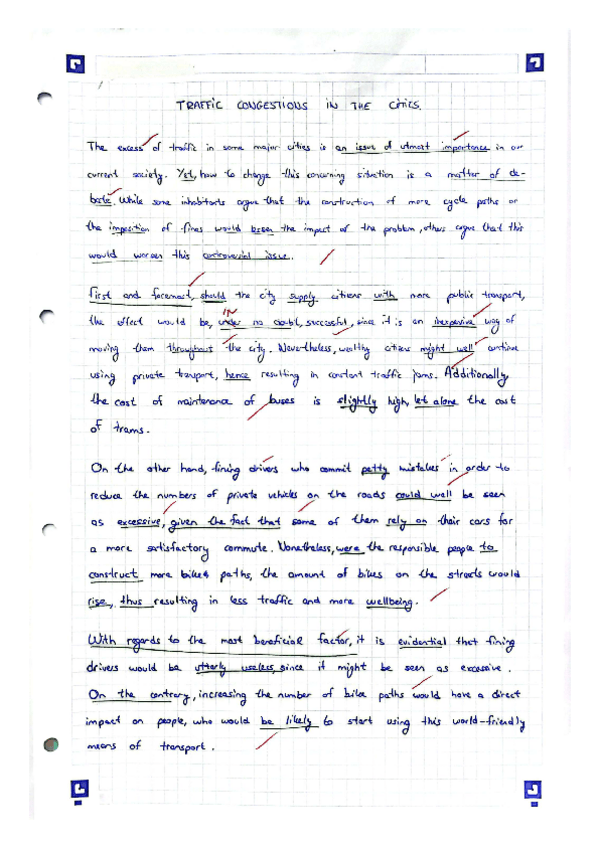 TRAFFIC CONGESTIONS IN THE CITIES.
The excess of traffic in some major cities is an issue of utmost importance in our
current society. Yet, how to change this concerning situation is a matter of de-
bate. While some inhabitants argue that the construction of more cycle paths or
the imposition of fines would lessen the impact of the problem, others argue that this
would worsen this controversial issue.
First and foremost, should the city supply citizens with more public transport,
IN
the effect would be, under no doubt, successful, since it is an inexpensive way of
moving them throughout the city. Nevertheless, wealthy citizens might well continue
using private transport, hence resulting in constant traffic jams. Additionally
the cost of maintenance of buses is slightly high, let alone the cost
of trams.
On the other hand, fining drivers who commit petty mistakes in order to
reduce the numbers of private vehicles on the roads could well be seen
as excessive, given the fact that some of them rely on their cars for
a more satisfactory commute. Nonetheless, were the responsible people to
construct more bike paths, the amount of bikes on the streets would
rise, thus resulting in less traffic and more wellbeing.
With regards to the most beneficial factor, it is evidential that fining
drivers would be utterly useless, since it might be seen as excessive.
On the contrary, increasing the number of bike paths would have a direct
impact on people, who would be likely to start using this world-friendly
means of transport.